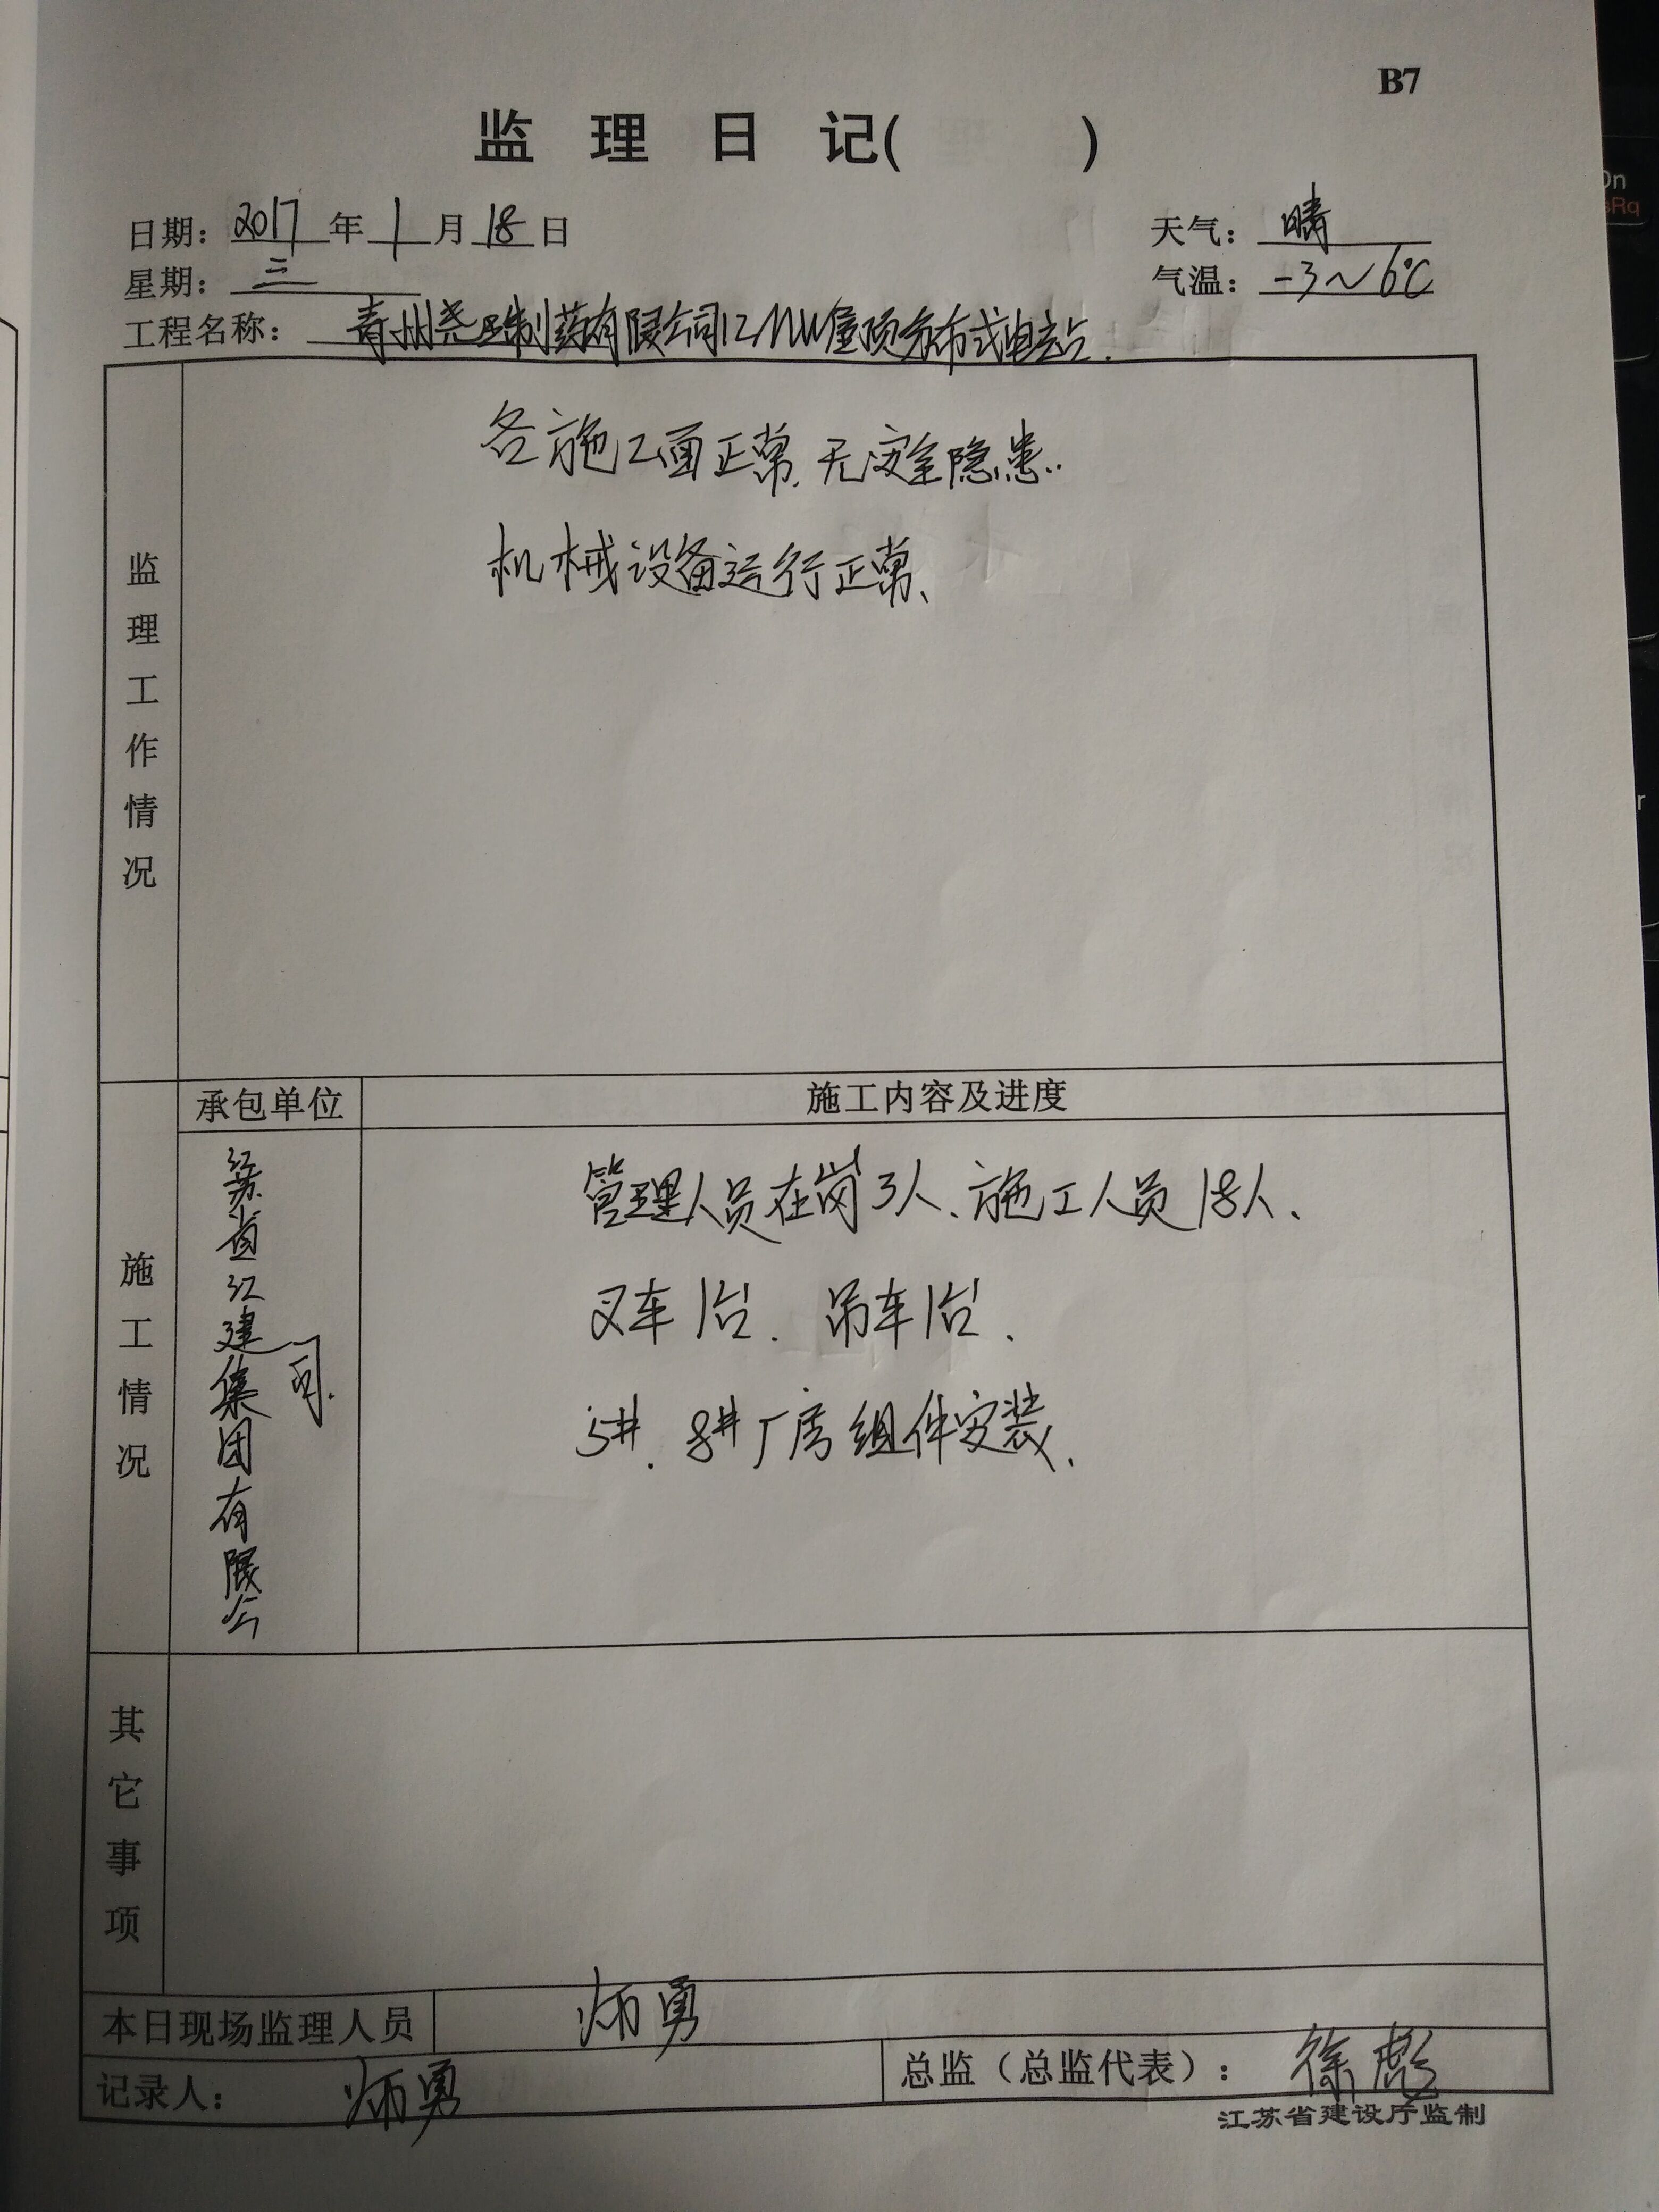 B7
监 理 日 记( )
日期: 2017 年 1 月 18 日
天气: 晴
星期: 三
气温: -3~6℃
工程名称: 青州尧王制药有限公司12MW屋顶分布式电站.
监理工作情况
各施工面正常.无安全隐患..
机械设备运行正常、
施工情况
承包单位
施工内容及进度
江苏省江建集团有限公司.
管理人员在岗3人、施工人员18人、
叉车1台. 吊车1台.
5#. 8#厂房组件安装.
其它事项
本日现场监理人员 师勇
记录人: 师勇
总监（总监代表）: 徐彪
江苏省建设厅监制
On
sRq
r